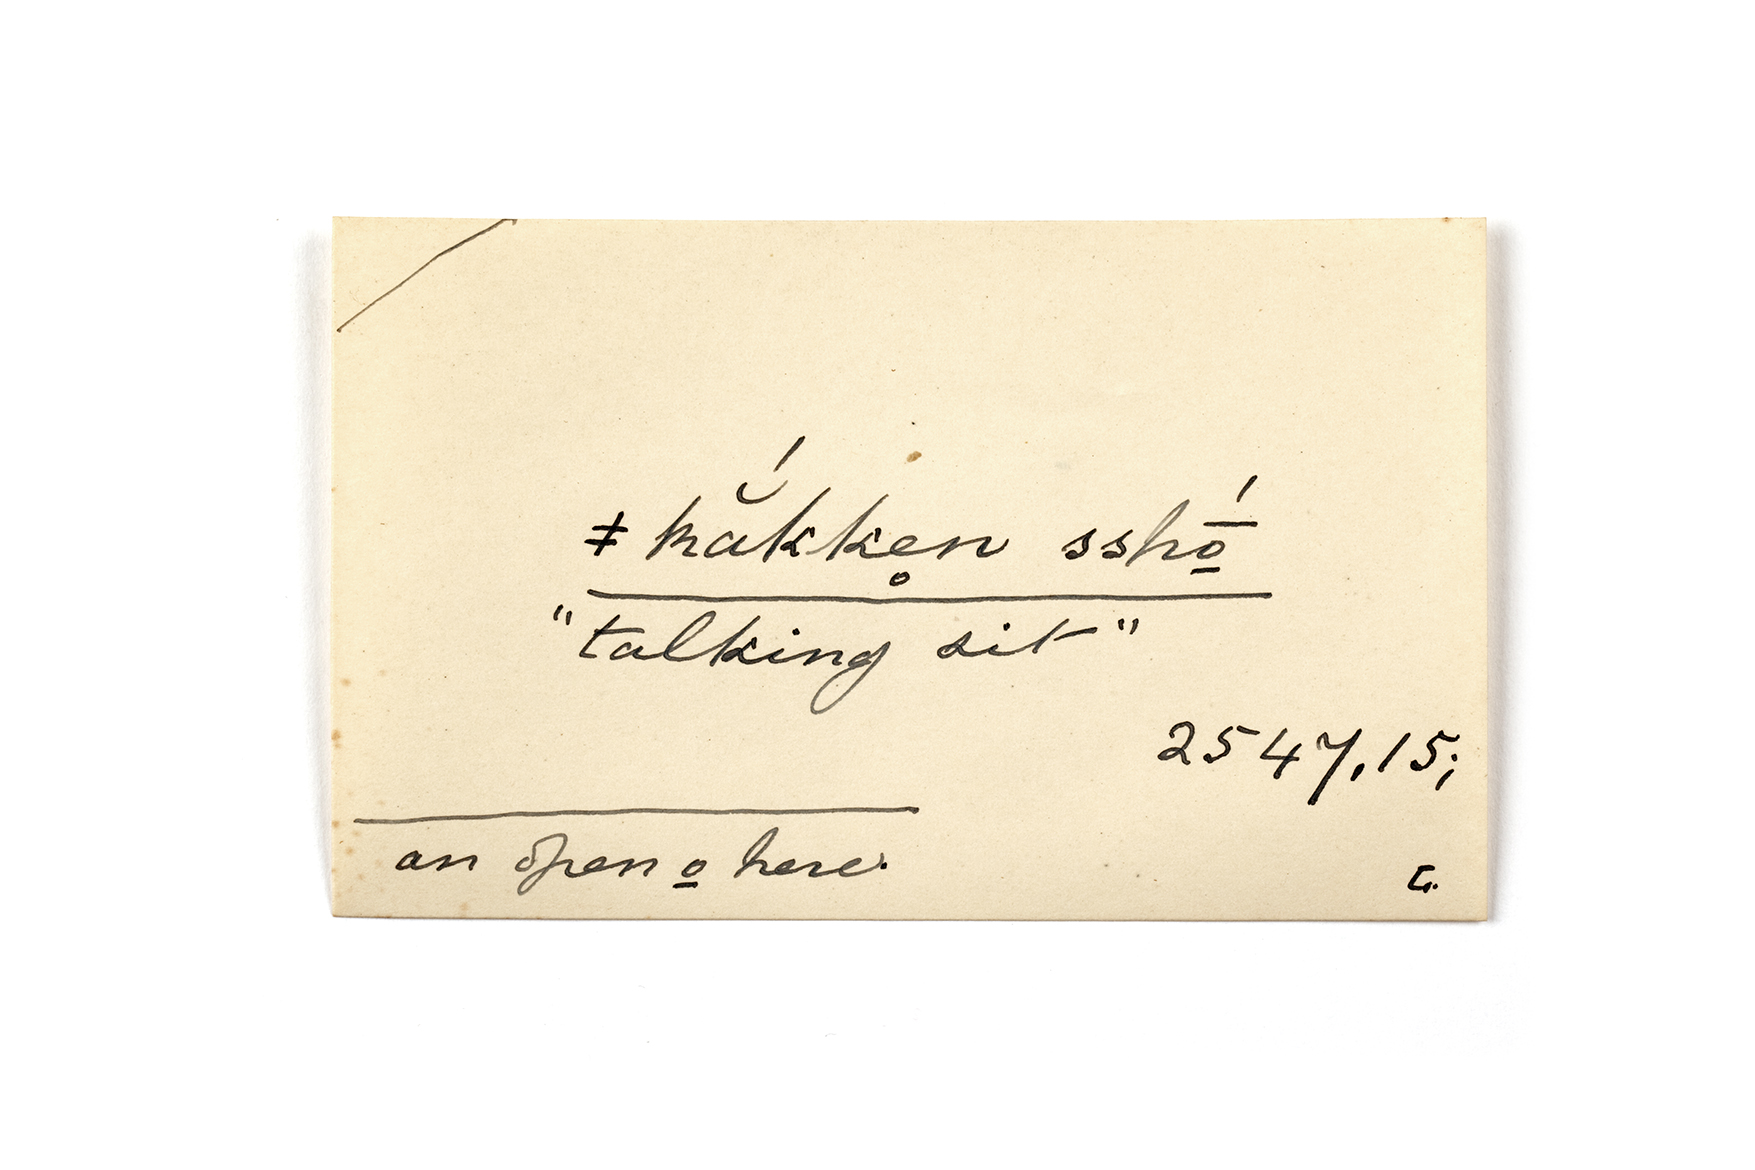 ǂ kắkke̥n sshṓ̠
"talking sit"
2547,15;
an open o̲ here.
L.